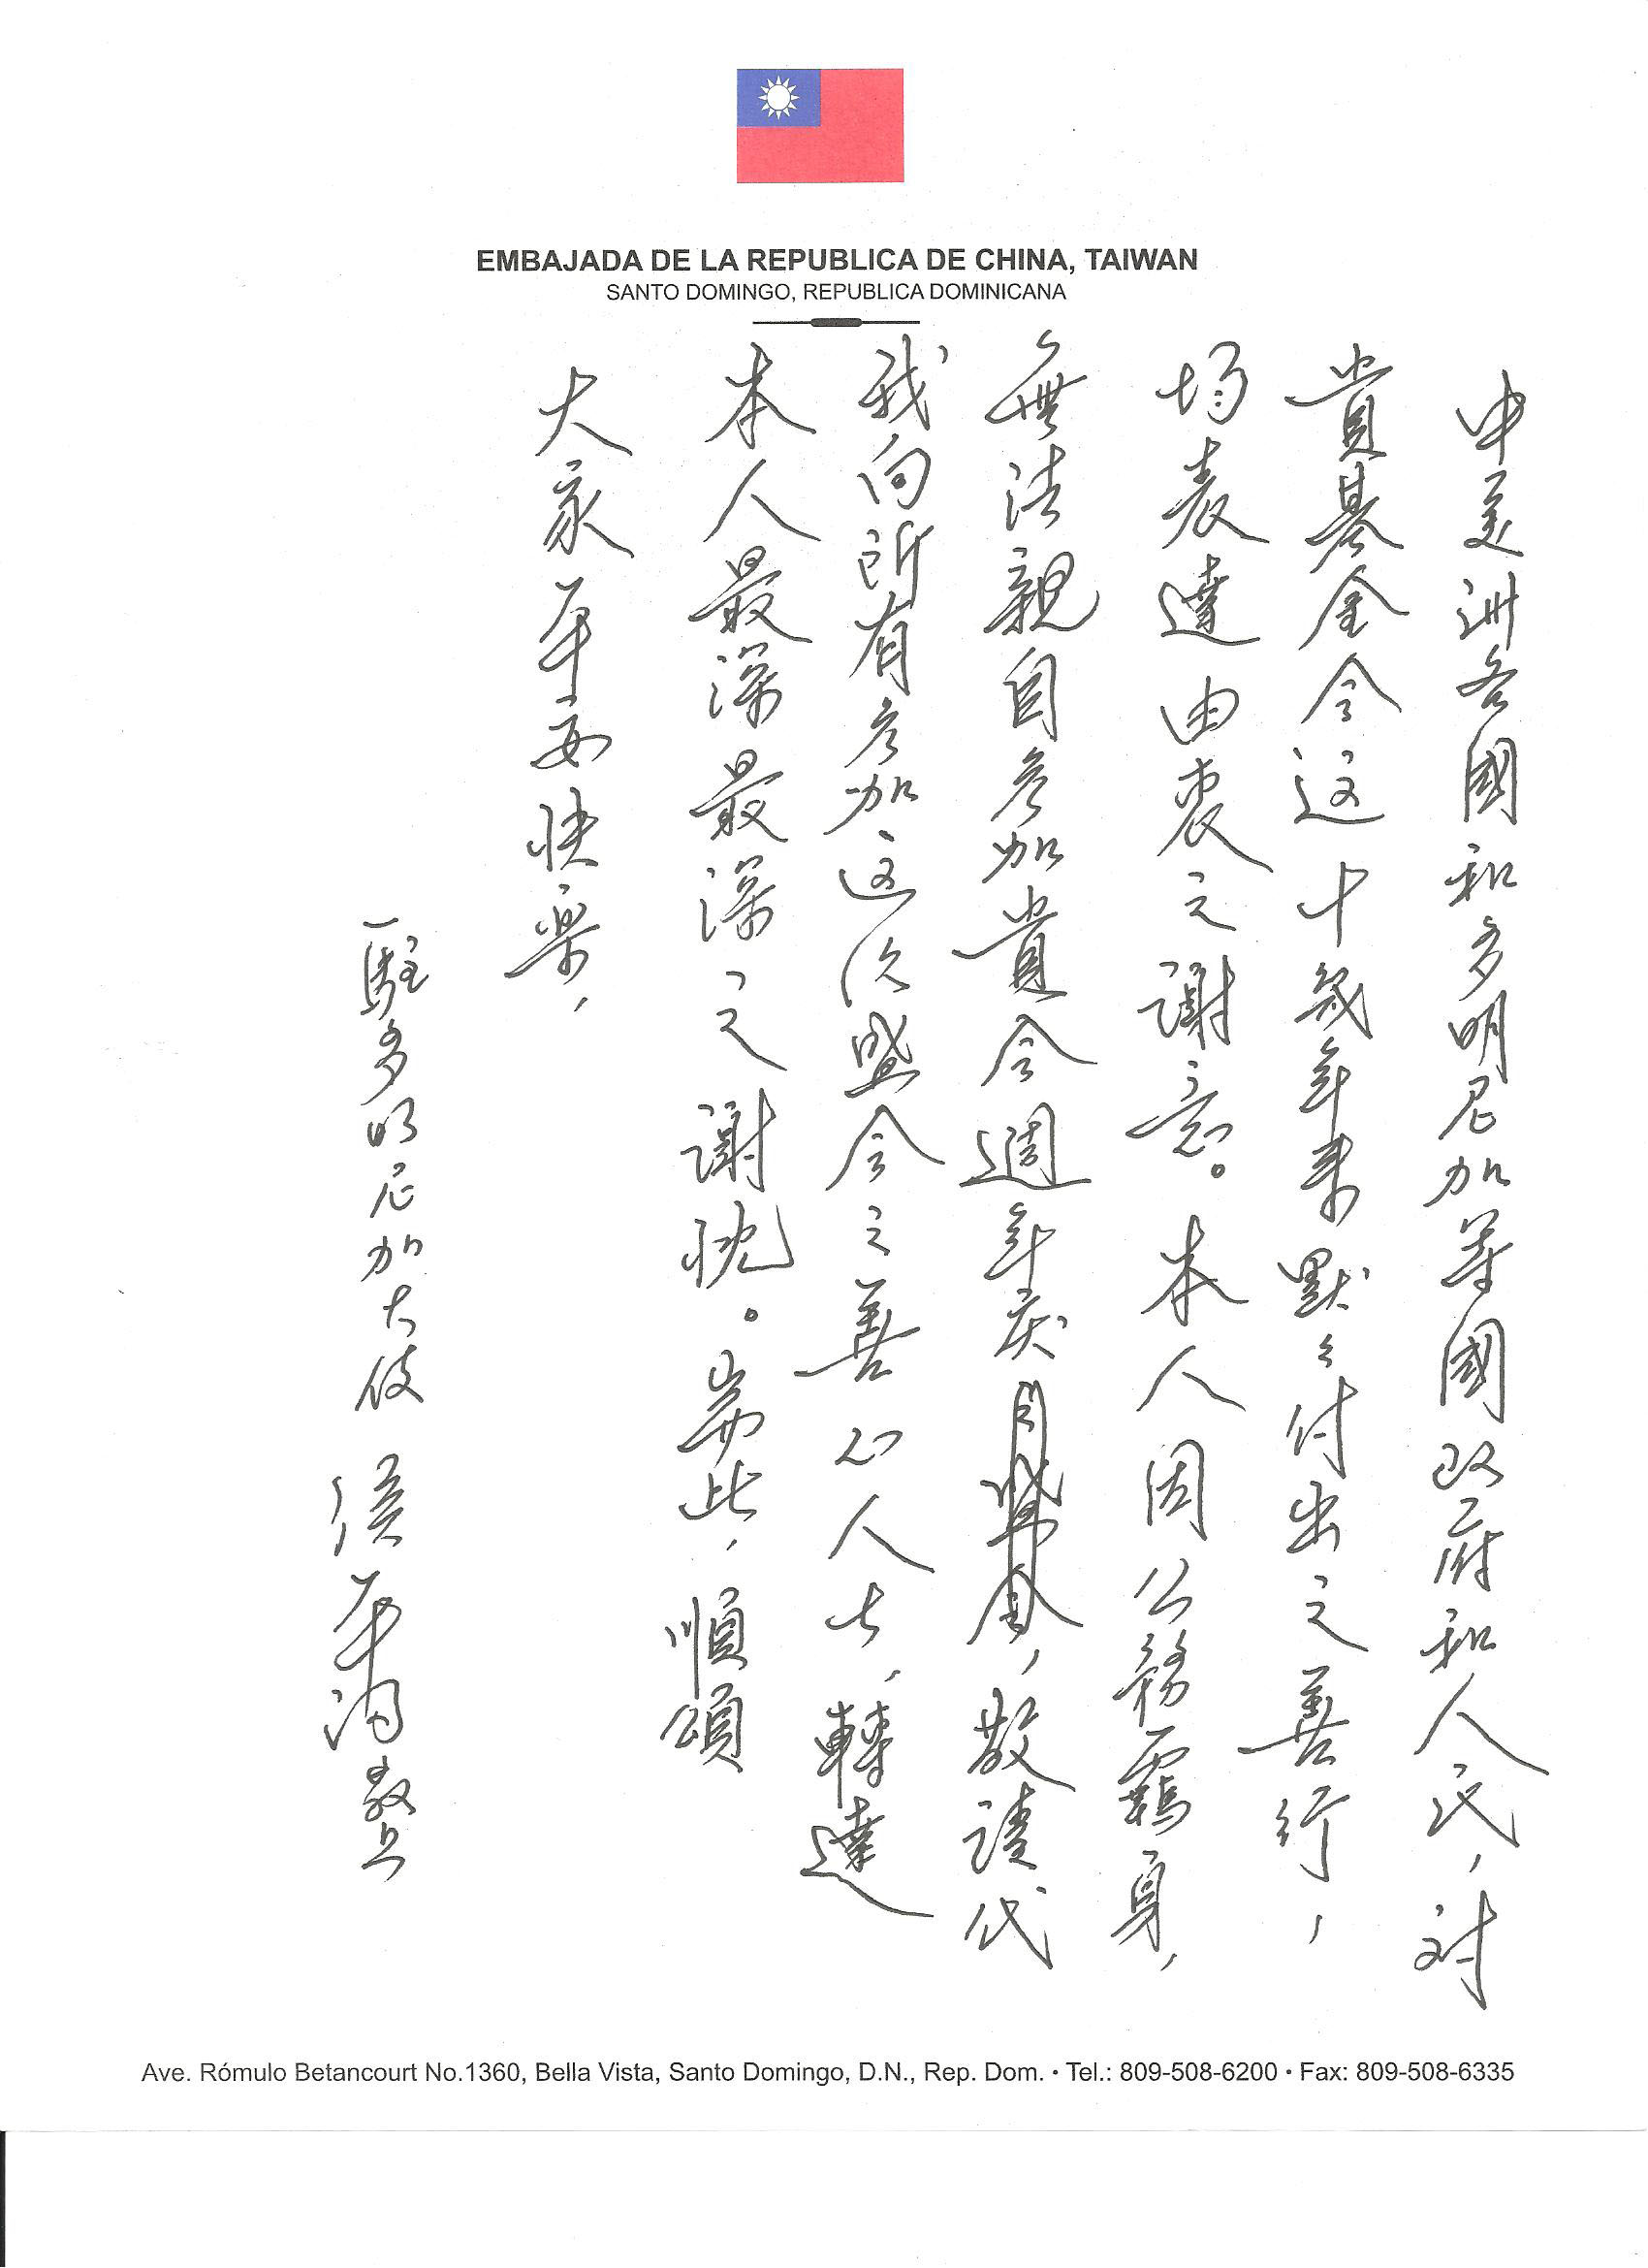 EMBAJADA DE LA REPUBLICA DE CHINA, TAIWAN
SANTO DOMINGO, REPUBLICA DOMINICANA
中美洲各國和多明尼加等國政府和人民，対
貴基金会这十幾年来默々付出之善行，
均表達由衷之謝意。本人因公務羈身，
無法親自参加貴会週年慶，敬請代
我向所有参加这次盛会之善心人士，轉達
本人最深最深之謝忱。耑此，順頌
大家平安快楽，
駐多明尼加大使 侯平福敬上
Ave. Rómulo Betancourt No.1360, Bella Vista, Santo Domingo, D.N., Rep. Dom. • Tel.: 809-508-6200 • Fax: 809-508-6335